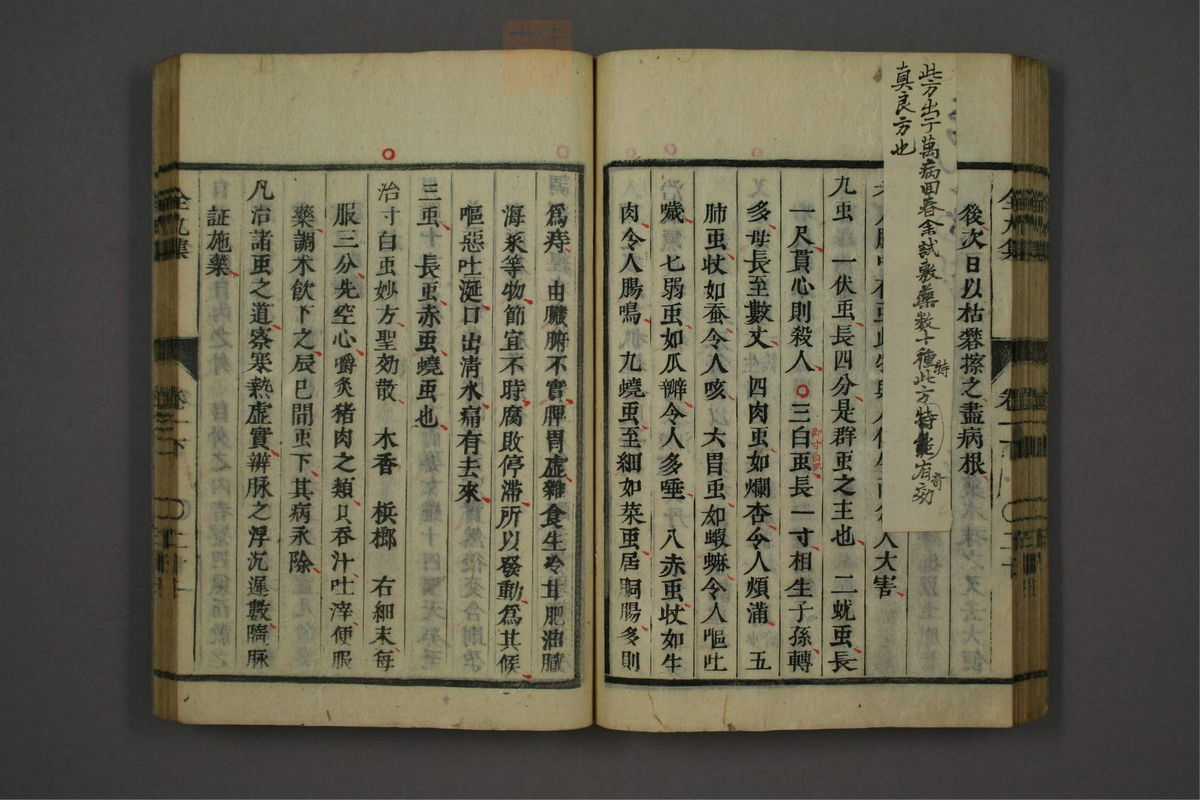 此方出于萬病回春余試數藥數十種此方特能有効
特
奇
真良方也
後次日以枯礬擦之盡病根
人大害
九虫 一伏䖝長四分是群䖝之主也 二蚘䖝長
一尺貫心則殺人 三白䖝長一寸相生子孫轉
即寸白虫
多母長至數丈 四肉䖝如爛杏令人煩滿 五
肺䖝狀如蚕令人咳 六胃䖝如蝦蟆令人嘔吐
噦 七弱䖝如瓜瓣令人多唾 八赤䖝狀如生
肉令人腸鳴 九蟯䖝至細如菜䖝居胴腸多則
全九集
卷一下
二十
為痔 由臟腑不實脾胃虛雜食生冷甘肥油臟
海菜等物節宜不時腐敗停滯所以發動為其候
嘔惡吐涎口出清水痛有去來
三䖝 長䖝赤䖝蟯䖝也
治寸白䖝妙方聖効散 木香 檳榔 右細末每
服三分先空心嚼炙猪肉之類只吞汁吐滓便服
藥調木飲下之辰巳間䖝下其病永除
凡治諸䖝之道察寒熱虛實辨脉之浮沉遲數隨脉
証施藥
全九集
卷一下
二十